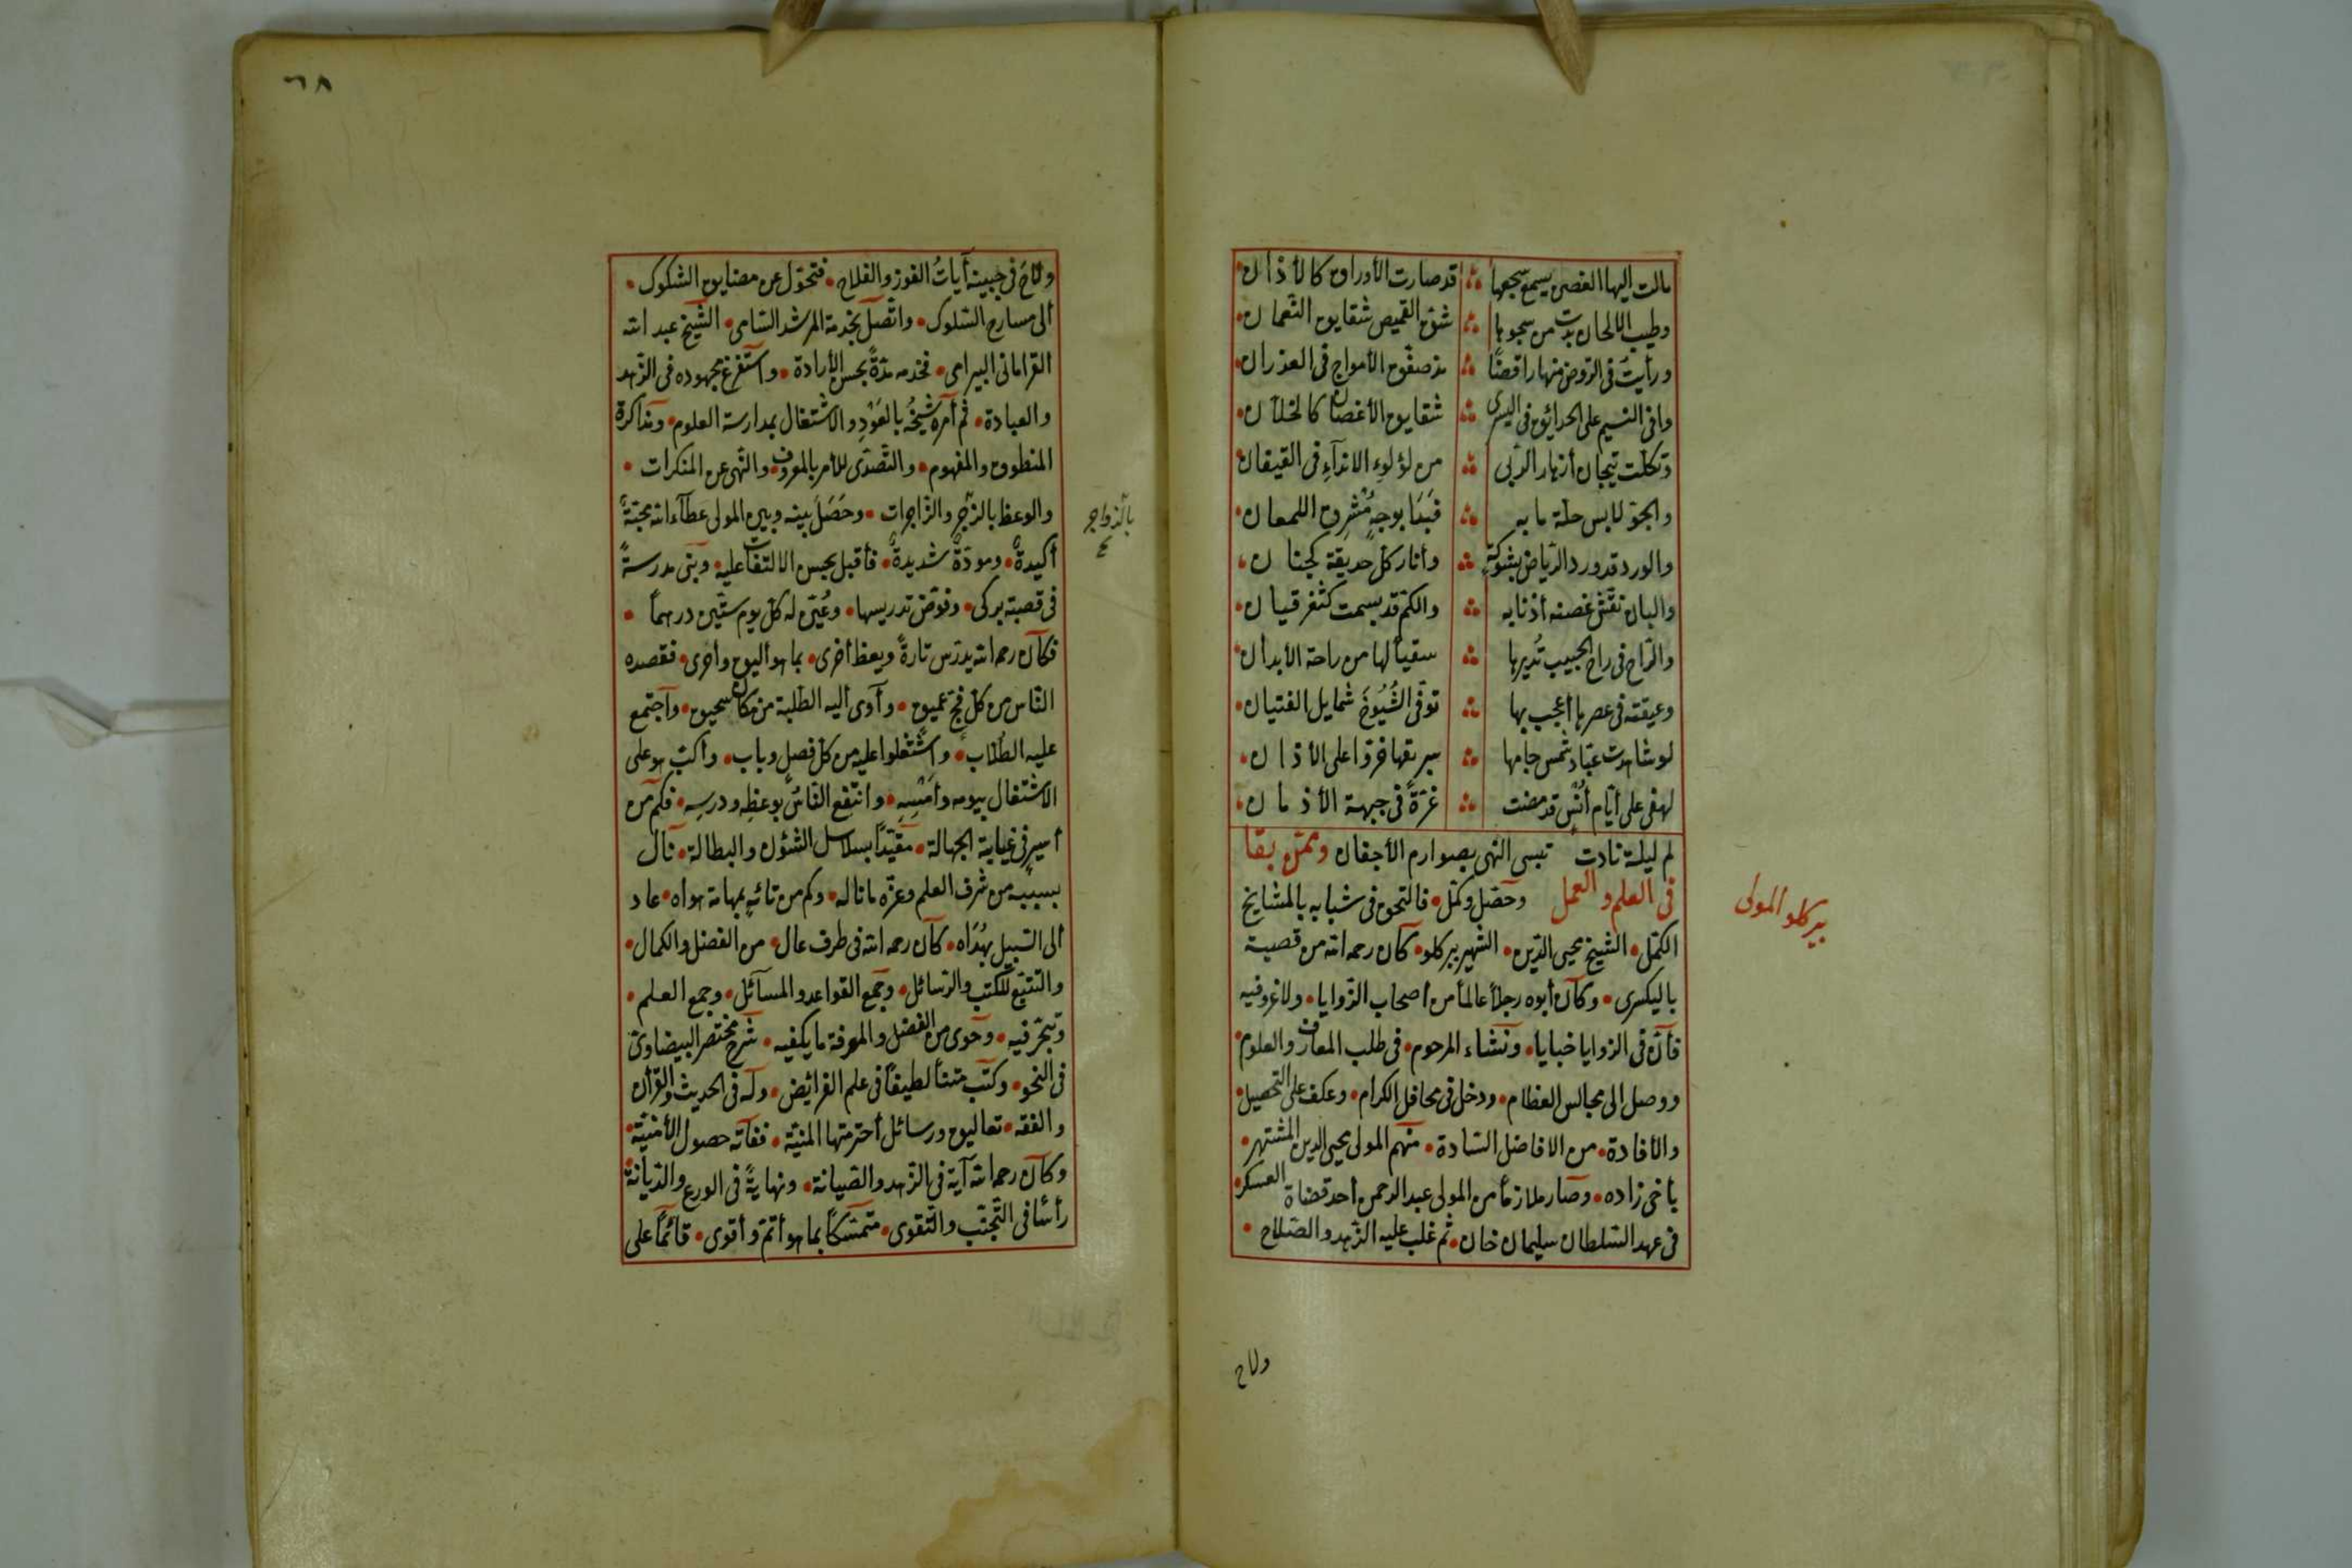 مالت اليها الغصن يسمع سجعها ∴ قد صارت الأوراق كالأذان
وطيب الالحان بدت من سجوها ∴ شق القميص شقايق النعمان
ورأيت في الروض منها راقصًا ∴ مذ صفق الأمواج في الغدران
وافى النسيم على الحدائق في السرى ∴ شقايق الأغصان كالخلان
وتكللت تيجان أزهار الربى ∴ من لؤلوء الانداء في القيقان
والجو لابس حلة مابه ∴ فبدا بوجه مشرق اللمعان
والورد قد ورد الرياض بشوكة ∴ وأنار كل حديقة كجنان
والبان نفش غصنه أذنابه ∴ والكم قد بسمت كثغر قيان
والراح في راح الحبيب تديرها ∴ سقيا لها من راحة الأبدان
وعيقته في عصرها أعجب بها ∴ توفى الشيوخ شمايل الفتيان
لو شاهدت عباد شمس جامها ∴ سبريقها خروا على الأذان
لهفي على أيام أنس قد مضت ∴ غرة في جبهة الأزمان
لم ليلة نادت تبسى النهى بصوارم الأجفان وممن بقا
في العلم والعمل وحصل وكمل• فالتحق في شبابه بالمشايخ
بيركلو المولى
الكمل• الشيخ محيى الدين• الشهير ببركلو• كان رحمه الله من قصبة
باليكسرى• وكان أبوه رجلاً عالماً من أصحاب الزوايا• ولا غرو فيه
فأن في الزوايا خبايا• ونشاء المرحوم• في طلب المعارف والعلوم•
ووصل الى مجالس العظام• ودخل في محافل الكرام• وعكف على التحصيل•
والأفادة• من الافاضل السادة• منهم المولى محيى الدين المشتهر•
بأخى زاده• وصار ملازماً من المولى عبد الرحمن أحد قضاة العسكر•
في عهد السلطان سليمان خان• ثم غلب عليه الزهد والصلاح•
ولاح
٦٨
ولاح في جبينه آيات الفوز والفلاح• فتحول عن مضايق الشكوك•
الى مسارح السلوك• واتصل بخدمة المرشد السامى• الشيخ عبد الله
القرامانى البيرامى• فخدمه مدةً بحسن الأرادة• واستفرغ مجهوده في الزهد
والعبادة• ثم أمره شيخه بالعود والاشتغال بمدارسة العلوم• ومذاكرة
المنطوق والمفهوم• والتصدى للأمر بالمعروف• والنهى عن المنكرات•
والوعظ بالزجر والزاجرات• وحصل بينه وبين المولى عطاء الله محبةٌ
بالزواجر
أكيدةٌ• ومودةٌ شديدةٌ• فأقبل بحسن الالتفات عليه• وبنى مدرسةً
في قصبة بركى• وفوض تدريسها• وعين له كل يوم ستين درهماً•
فكان رحمه الله يدرس تارةً ويعظ أخرى• بما هو أليق وأحرى• فقصده
الناس من كل فج عميق• وآوى أليه الطلبة من مكان سحيق• واجتمع
عليه الطلاب• واشتغلوا عليه من كل فصل وباب• وأكب هو على
الاشتغال بيومه وأمسه• وانتفع الناس بوعظه ودرسه• فكم من
أسير في غيابة الجهالة• مقيداً بسلاسل الشؤن والبطالة• نال
بسببه من شرف العلم وعزه ما ناله• وكم من تائه بمهامه هواه• عاد
الى السبيل بهداه• كان رحمه الله في طرف عال• من الفضل والكمال•
والتتبع للكتب والرسائل• وجمع القواعد والمسآئل• وجمع العلم•
وتبحر فيه• وحوى من الفضل والمعرفة ما يكفيه• شرح مختصر البيضاوى
في النحو• وكتب متناً لطيفاً في علم الفرائض• وله في الحديث والقرآن
والفقه• تعاليق ورسائل أحترمتها المنية• ففاته حصول الأمنية•
وكان رحمه الله آية في الزهد والصيانة• ونهايةً في الورع والديانة•
رأساً في التجنب والتقوى• متمسكاً بما هو أتم وأقوى• قائماً على